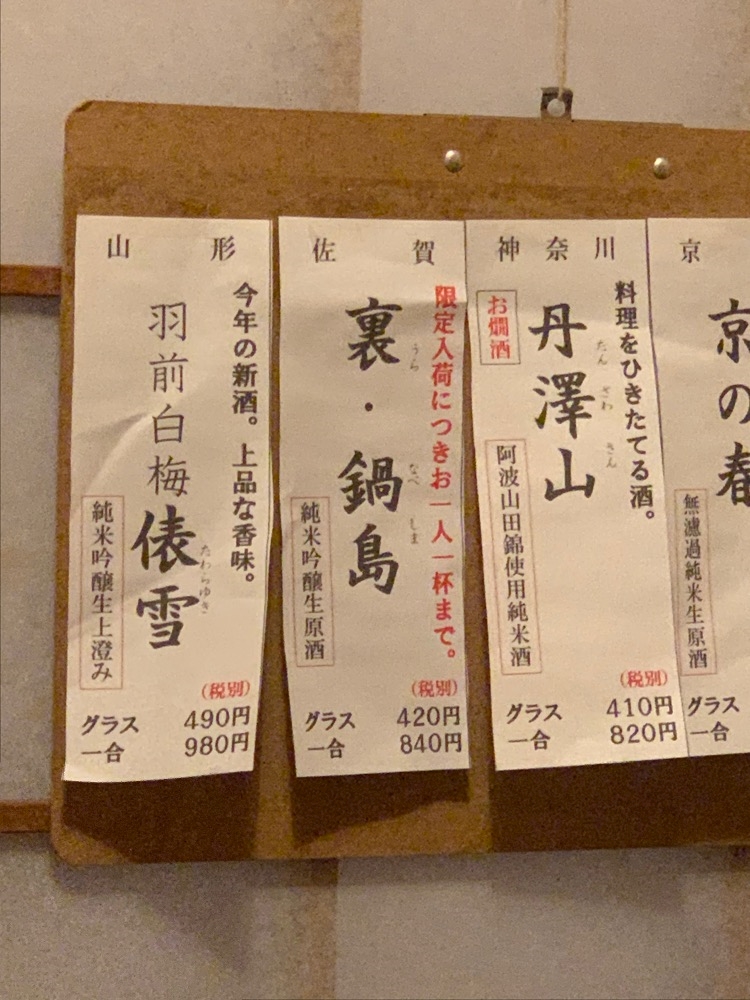 山形
今年の新酒。上品な香味。
羽前白梅俵雪
たわらゆき
純米吟醸生上澄み
(税別)
グラス 490円
一合 980円
佐賀
限定入荷につきお一人一杯まで。
裏・鍋島
うら なべしま
純米吟醸生原酒
(税別)
グラス 420円
一合 840円
神奈川
料理をひきたてる酒。
丹澤山
たん ざわ さん
お燗酒
阿波山田錦使用純米酒
(税別)
グラス 410円
一合 820円
京
京の春
無濾過純米生原酒
グラス
一合